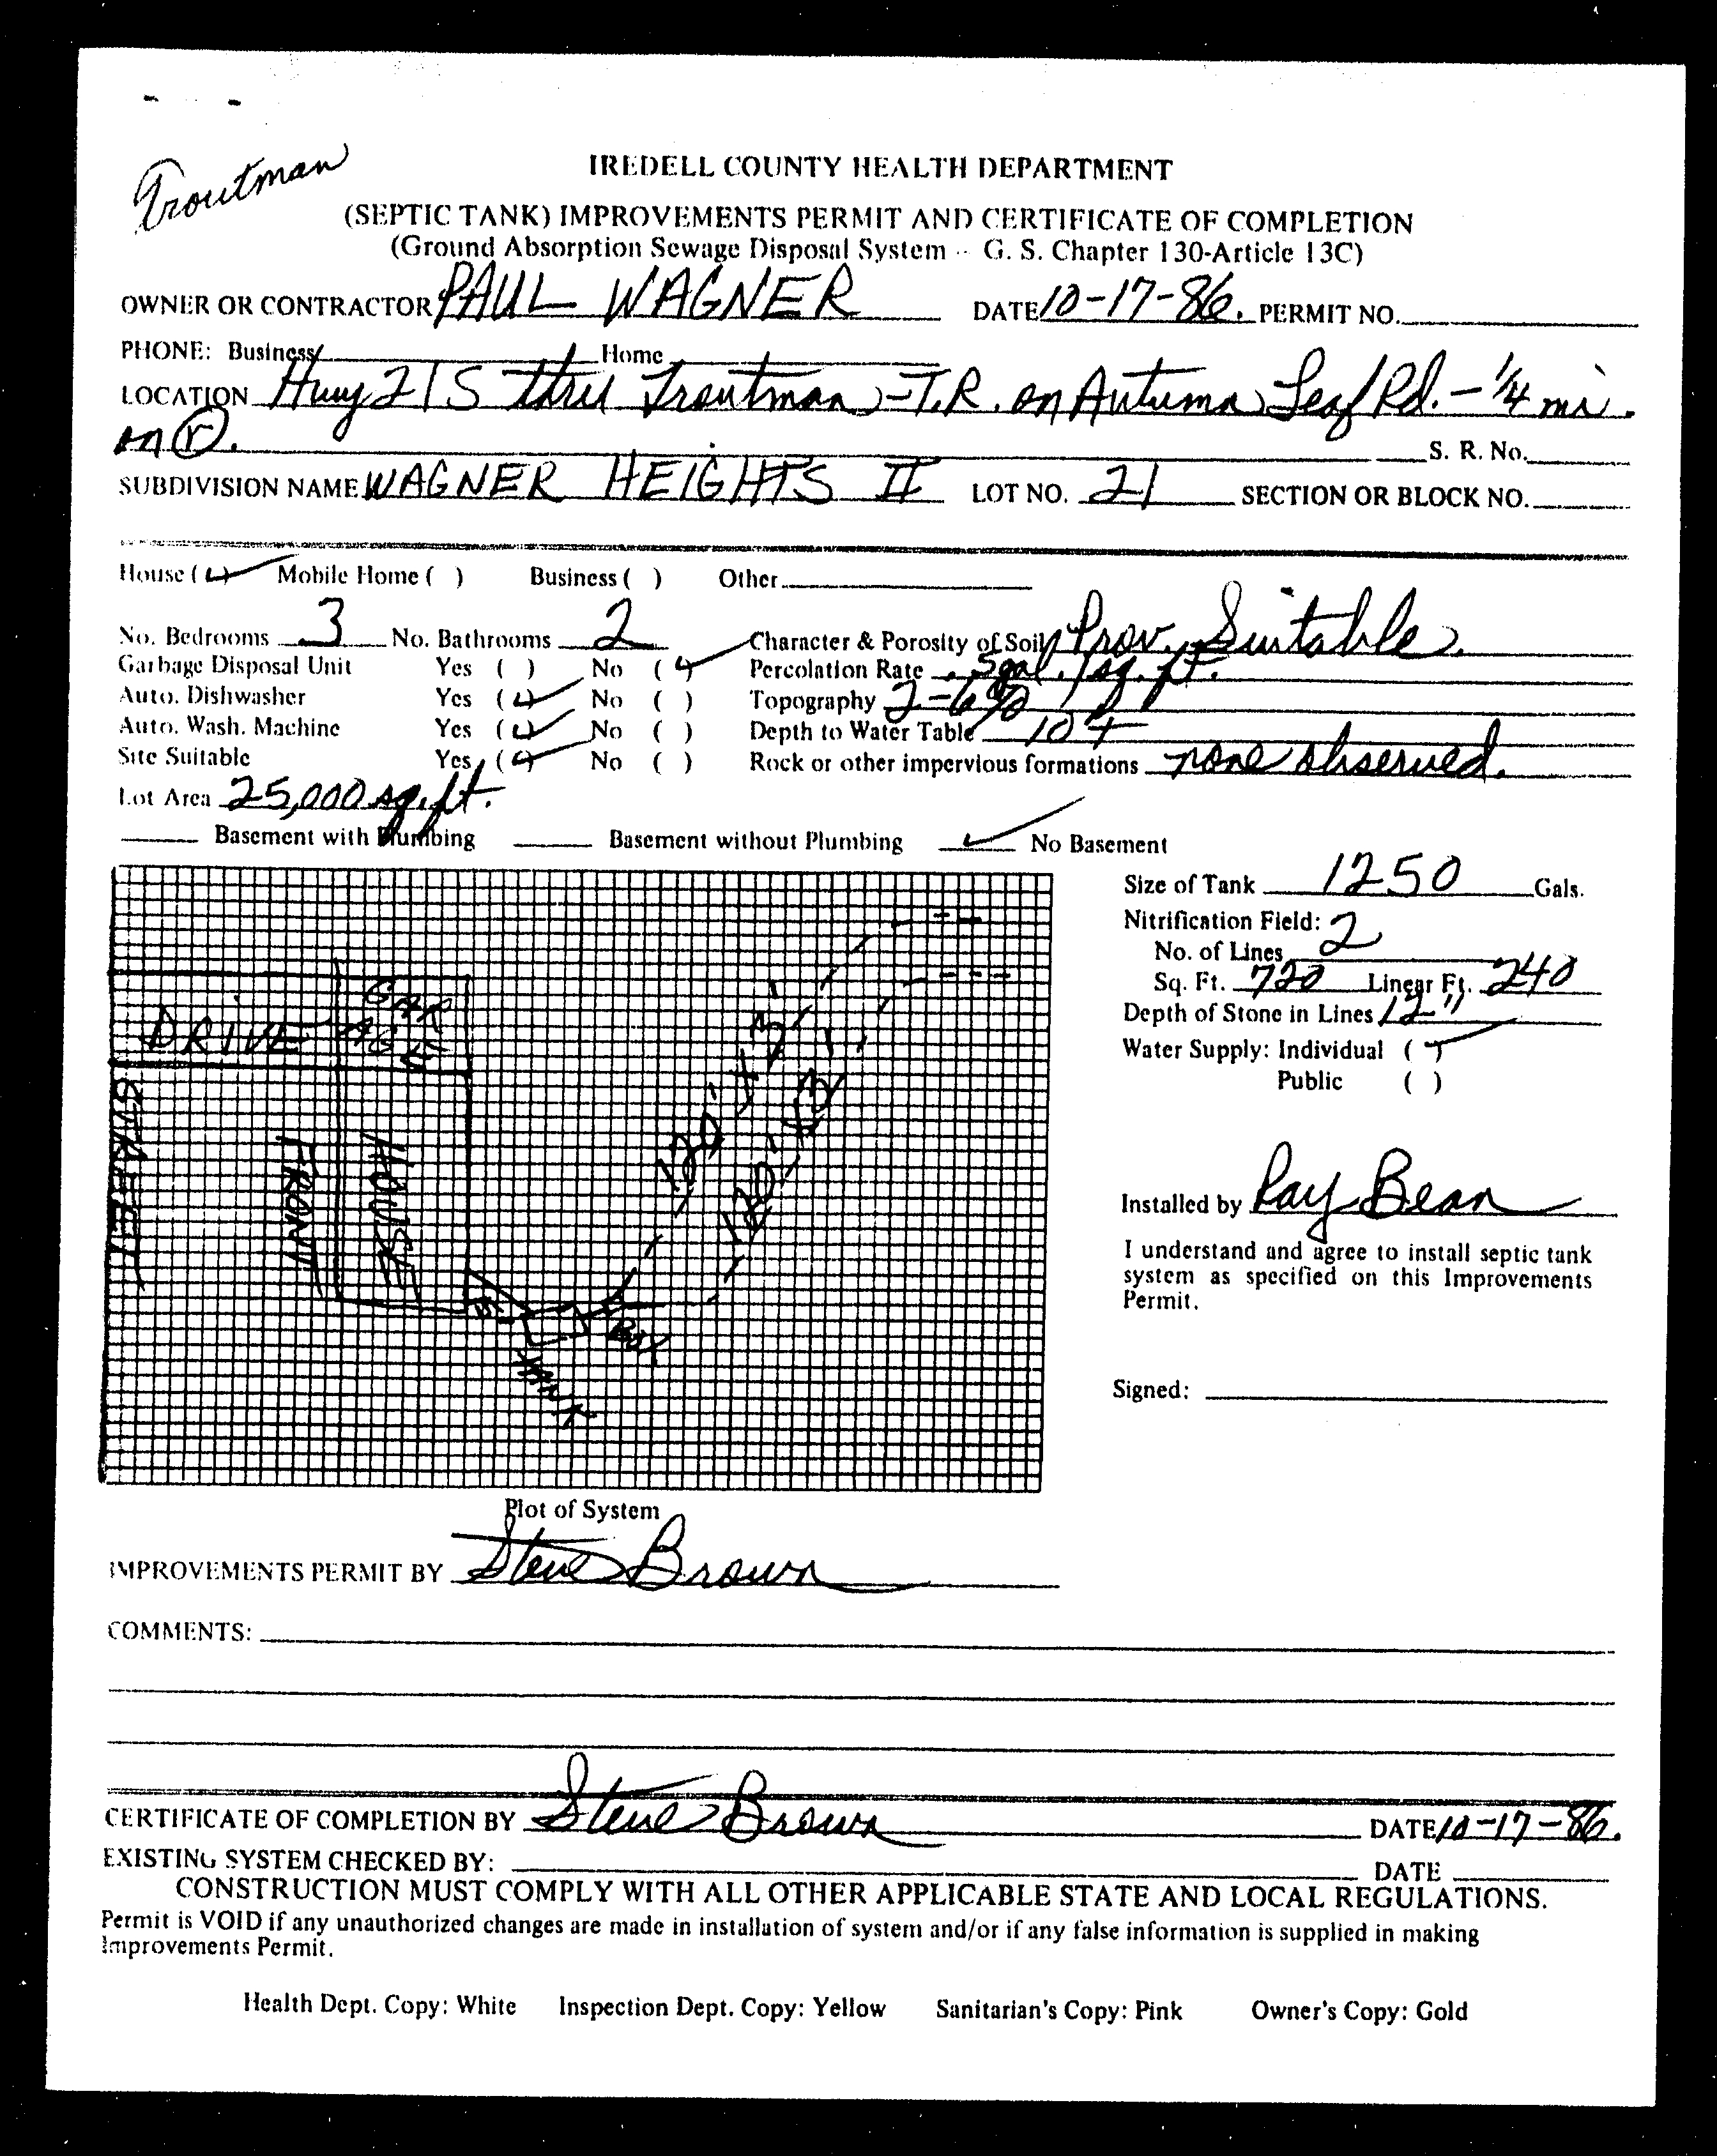 Troutman
IREDELL COUNTY HEALTH DEPARTMENT
(SEPTIC TANK) IMPROVEMENTS PERMIT AND CERTIFICATE OF COMPLETION
(Ground Absorption Sewage Disposal System -- G. S. Chapter 130-Article 13C)
OWNER OR CONTRACTOR PAUL WAGNER DATE 10-17-86. PERMIT NO.
PHONE: Business Home
LOCATION Hwy 21 S thru Troutman - T.R. on Autumn Leaf Rd. - 1/4 mi.
on (r). S. R. No.
SUBDIVISION NAME WAGNER HEIGHTS II LOT NO. 21 SECTION OR BLOCK NO.
House (✓) Mobile Home ( ) Business ( ) Other
No. Bedrooms 3 No. Bathrooms 2 Character & Porosity of Soil Prov. Suitable.
Garbage Disposal Unit Yes ( ) No (✓) Percolation Rate .5gal./sq. ft.
Auto. Dishwasher Yes (✓) No ( ) Topography 2-6%
Auto. Wash. Machine Yes (✓) No ( ) Depth to Water Table 10'+
Site Suitable Yes (✓) No ( ) Rock or other impervious formations none observed.
Lot Area 25,000 sq. ft.
Basement with Plumbing Basement without Plumbing ✓ No Basement
Size of Tank 1250 Gals.
Nitrification Field:
No. of Lines 2
Sq. Ft. 720 Linear Ft. 240
Depth of Stone in Lines 12"
Water Supply: Individual (✓)
Public ( )
DRIVE
GAR
AGE
STREET
FRONT
HOUSE
TANK
BOX
120' x 3'
120' x 3'
Installed by Ray Bean
I understand and agree to install septic tank
system as specified on this Improvements
Permit.
Signed:
Plot of System
IMPROVEMENTS PERMIT BY Steve Brown
COMMENTS:
CERTIFICATE OF COMPLETION BY Steve Brown DATE 10-17-86.
EXISTING SYSTEM CHECKED BY: DATE
CONSTRUCTION MUST COMPLY WITH ALL OTHER APPLICABLE STATE AND LOCAL REGULATIONS.
Permit is VOID if any unauthorized changes are made in installation of system and/or if any false information is supplied in making
Improvements Permit.
Health Dept. Copy: White Inspection Dept. Copy: Yellow Sanitarian's Copy: Pink Owner's Copy: Gold